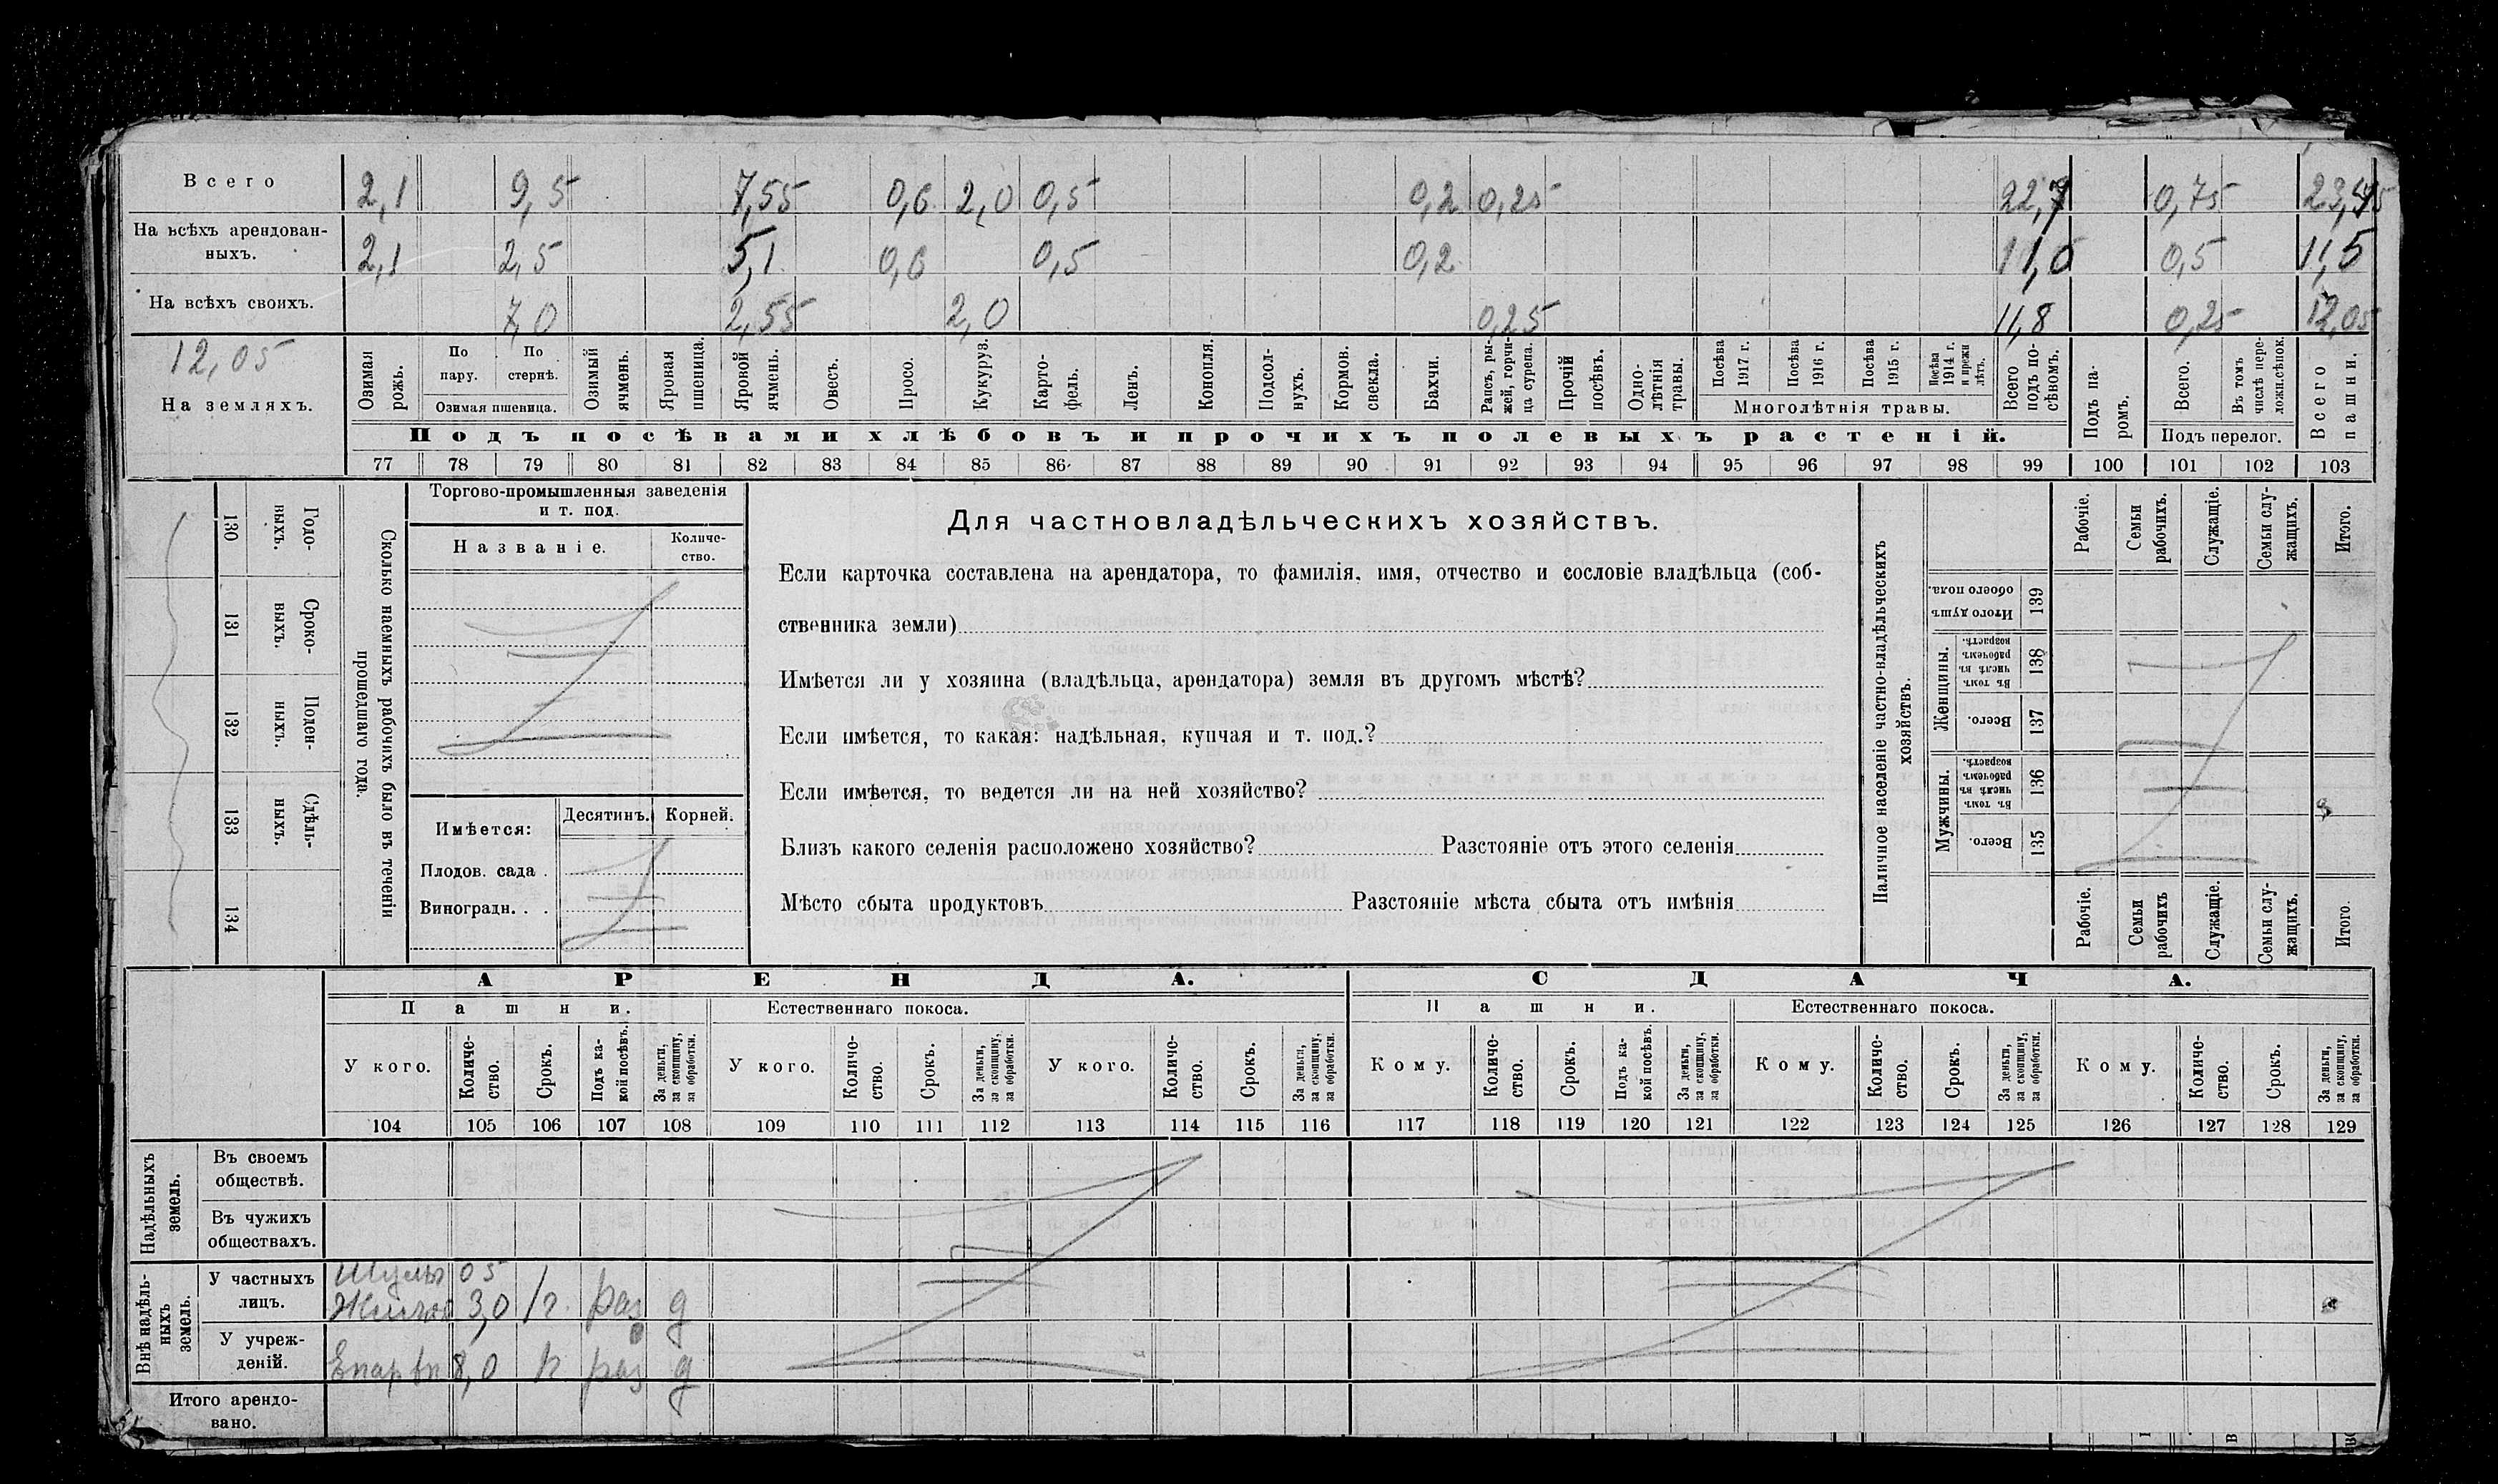 Всего 2,1 9,5 7,55 0,6 2,0 0,5 0,2 0,25 22,7 0,75
На всѣхъ арендован-
ныхъ. 2,1 2,5 5,1 0,6 0,5 0,2 11,0 0,5 11,5
На всѣхъ своихъ. 7,0 2,55 2,0 0,25 11,8 0,25 12,05
12,05
На земляхъ.
Озимая рожь.
По пару.
По стернѣ.
Озимая пшеница.
Озимый ячмень.
Яровая пшеница.
Яровой ячмень.
Овесъ.
Просо.
Кукуруз.
Карто-
фель.
Ленъ.
Конопля.
Подсол-
нухъ.
Кормов. свекла.
Бахчи.
Рапсъ, ры-
жей, горчи-
ца сурепа.
Прочій посѣвъ.
Одно-
лѣтнія травы.
Посѣва 1917 г.
Посѣва 1916 г.
Посѣва 1915 г.
Посѣва 1914 г. и прежн лѣтъ.
Многолѣтнія травы.
Всего подъ по-
сѣвомъ.
Подъ па-
ромъ.
Всего.
Въ томъ числѣ пере-
ложн.сѣнок.
Подъ перелог.
Всего пашни.
Подъ посѣвами хлѣбовъ и прочихъ полевыхъ растеній.
77 78 79 80 81 82 83 84 85 86 87 88 89 90 91 92 93 94 95 96 97 98 99 100 101 102 103
130 Годо-
ныхъ.
131 Сроко-
выхъ.
132 Поден-
ныхъ.
133 Сдѣль-
ныхъ.
134
Сколько наемныхъ рабочихъ было въ теченіи
прошедшаго года.
Торгово-промышленныя заведенія
и т. под.
Названіе.
Количе-
ство.
Имѣется: Десятинъ. Корней.
Плодов. сада .
Виноградн. . .
Для частновладѣльческихъ хозяйствъ.
Если карточка составлена на арендатора, то фамилія, имя, отчество и сословіе владѣльца (соб-
ственника земли)
Имѣется ли у хозяина (владѣльца, арендатора) земля въ другомъ мѣстѣ?
Если имѣется, то какая: надѣльная, купчая и т. под.?
Если имѣется, то ведется ли на ней хозяйство?
Близъ какого селенія расположено хозяйство? Разстояніе отъ этого селенія
Мѣсто сбыта продуктовъ Разстояніе мѣста сбыта отъ имѣнія
Наличное населеніе частно-владѣльческихъ
хозяйствъ.
Рабочіе.
Семьи рабочихъ.
Служащіе.
Семьи слу-
жащихъ.
Итого.
Итого душъ обоего пола. 139
Женщины.
Въ томъ числѣ въ рабочемъ возрастѣ. 138
Всего. 137
Мужчины.
Въ томъ числѣ въ рабочемъ возрастѣ. 136
Всего. 135
Рабочіе.
Семьи рабочихъ
Служащіе.
Семьи слу-
жащихъ.
Итого.
АРЕНДА. СДАЧА.
Пашни. Естественнаго покоса. Пашни. Естественнаго покоса.
У кого.
Количе-
ство.
Срокъ.
Подъ ка-
кой посѣвъ.
За деньги, за скопщину, за обработки.
У кого.
Количе-
ство.
Срокъ.
За деньги, за скопщину, за обработки.
У кого.
Количе-
ство.
Срокъ.
За деньги, за скопщину, за обработки.
Кому.
Количе-
ство.
Срокъ.
Подъ ка-
кой посѣвъ.
За деньги, за скопщину, за обработки.
Кому.
Количе-
ство.
Срокъ.
За деньги, за скопщину, за обработки.
Кому.
Количе-
ство.
Срокъ.
За деньги, за скопщину, за обработки.
104 105 106 107 108 109 110 111 112 113 114 115 116 117 118 119 120 121 122 123 124 125 126 127 128 129
Надѣльныхъ земель.
Въ своемъ
обществѣ.
Въ чужихъ
обществахъ.
Внѣ надѣль-
ныхъ земель.
У частныхъ
лицъ. 05
3,0 1г. раз д
У учреж-
деній. 8,0 раз д
Итого арендо-
вано.